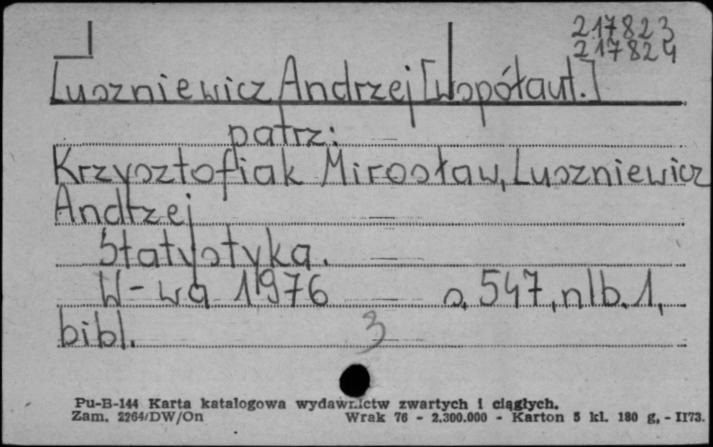 217823
217824
Luszniewicz Andrzej [współaut.]
patrz:
Krzysztofiak Mirosław, Luszniewicz
Andrzej
Statystyka.
W-wa 1976 s. 547, nlb. 1,
bibl.
3
Pu-B-144 Karta katalogowa wydawnictw zwartych i ciągłych.
Zam. 2264/DW/On Wrak 76 - 2.300.000 - Karton 5 kl. 180 g. - II73.